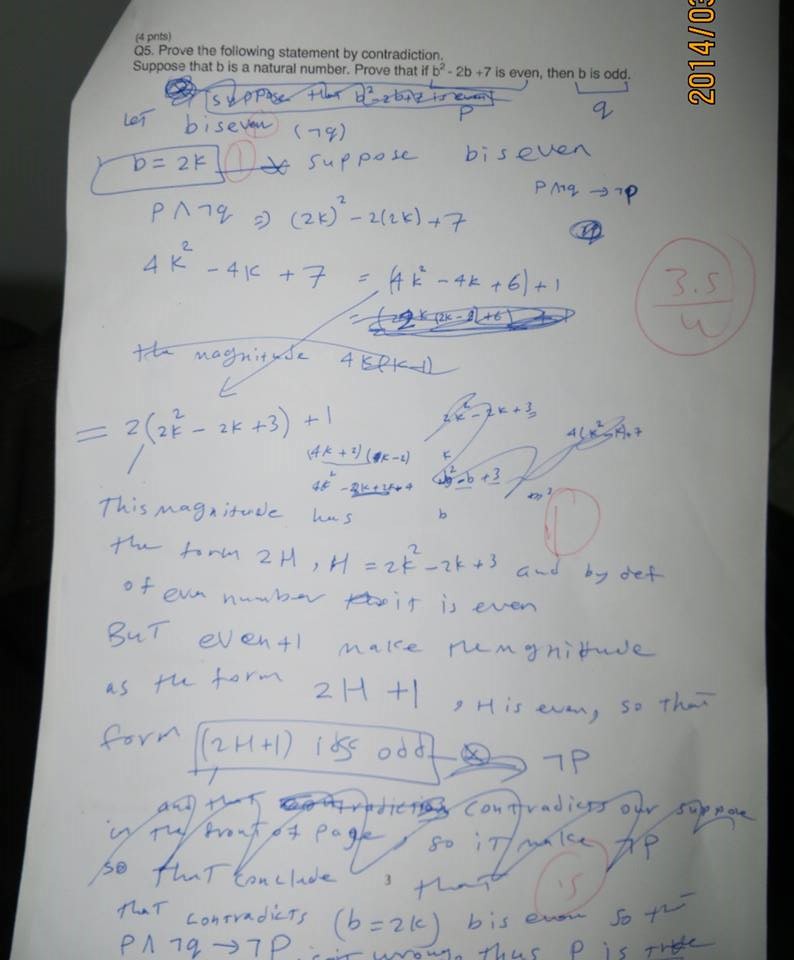 2014/03
(4 pnts)
Q5. Prove the following statement by contradiction.
Suppose that b is a natural number. Prove that if b² - 2b +7 is even, then b is odd.
suppose that b²-2b+7 is even
p
q
Let b is even (¬q)
b = 2k
1
suppose b is even
P∧¬q → ¬P
P∧¬q ⇒ (2k)² - 2(2k) + 7
4k² - 4k + 7 = (4k² - 4k + 6) + 1
3.5
4
the magnitude
= 2(2k² - 2k + 3) + 1
2k² - 2k + 3
This magnitude has
b
1
the form 2H, H = 2k² - 2k + 3 and by def
of even number it is even
But even+1 make the magnitude
as the form 2H + 1, H is even, so that
form (2H+1) is odd
¬P
and that contradicts our suppose
in the front of page, so it make ¬P
so that conclude that
3
that contradicts (b = 2k) b is even so the
P∧¬q → ¬P wrong, thus P is true